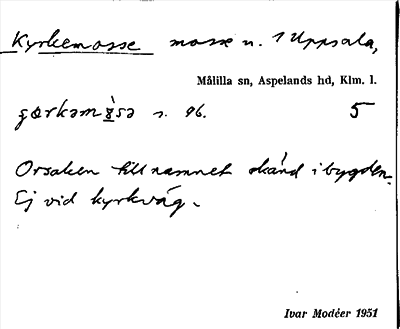 Kyrkemosse mosse n. 1 Uppsala,
Målilla sn, Aspelands hd, Klm. l.
s. 96. 5
Orsaken till namnet okänd i bygden.
Ej vid kyrkväg.
Ivar Modéer 1951